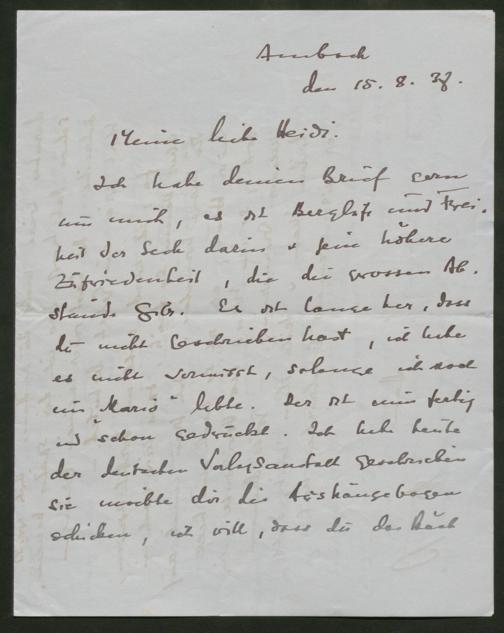 Ambach
den 15. 8. 37.
Meine liebe Heidi.
Ich habe deinen Brief gern
um mich, es ist Bergluft und Frei-
heit der Seele darin + jene höhere
Zufriedenheit, die die grossen Ab-
stände giebt. Es ist lange her, dass
du nicht geschrieben hast, ich habe
es nicht vermisst, solange ich noch
im "Mario" lebte. Der ist nun fertig
und schon gedruckt. Ich habe heute
der deutschen Verlagsanstalt geschrieben
sie möchte dir die Aushängebogen
schicken, ich will, dass du das Buch